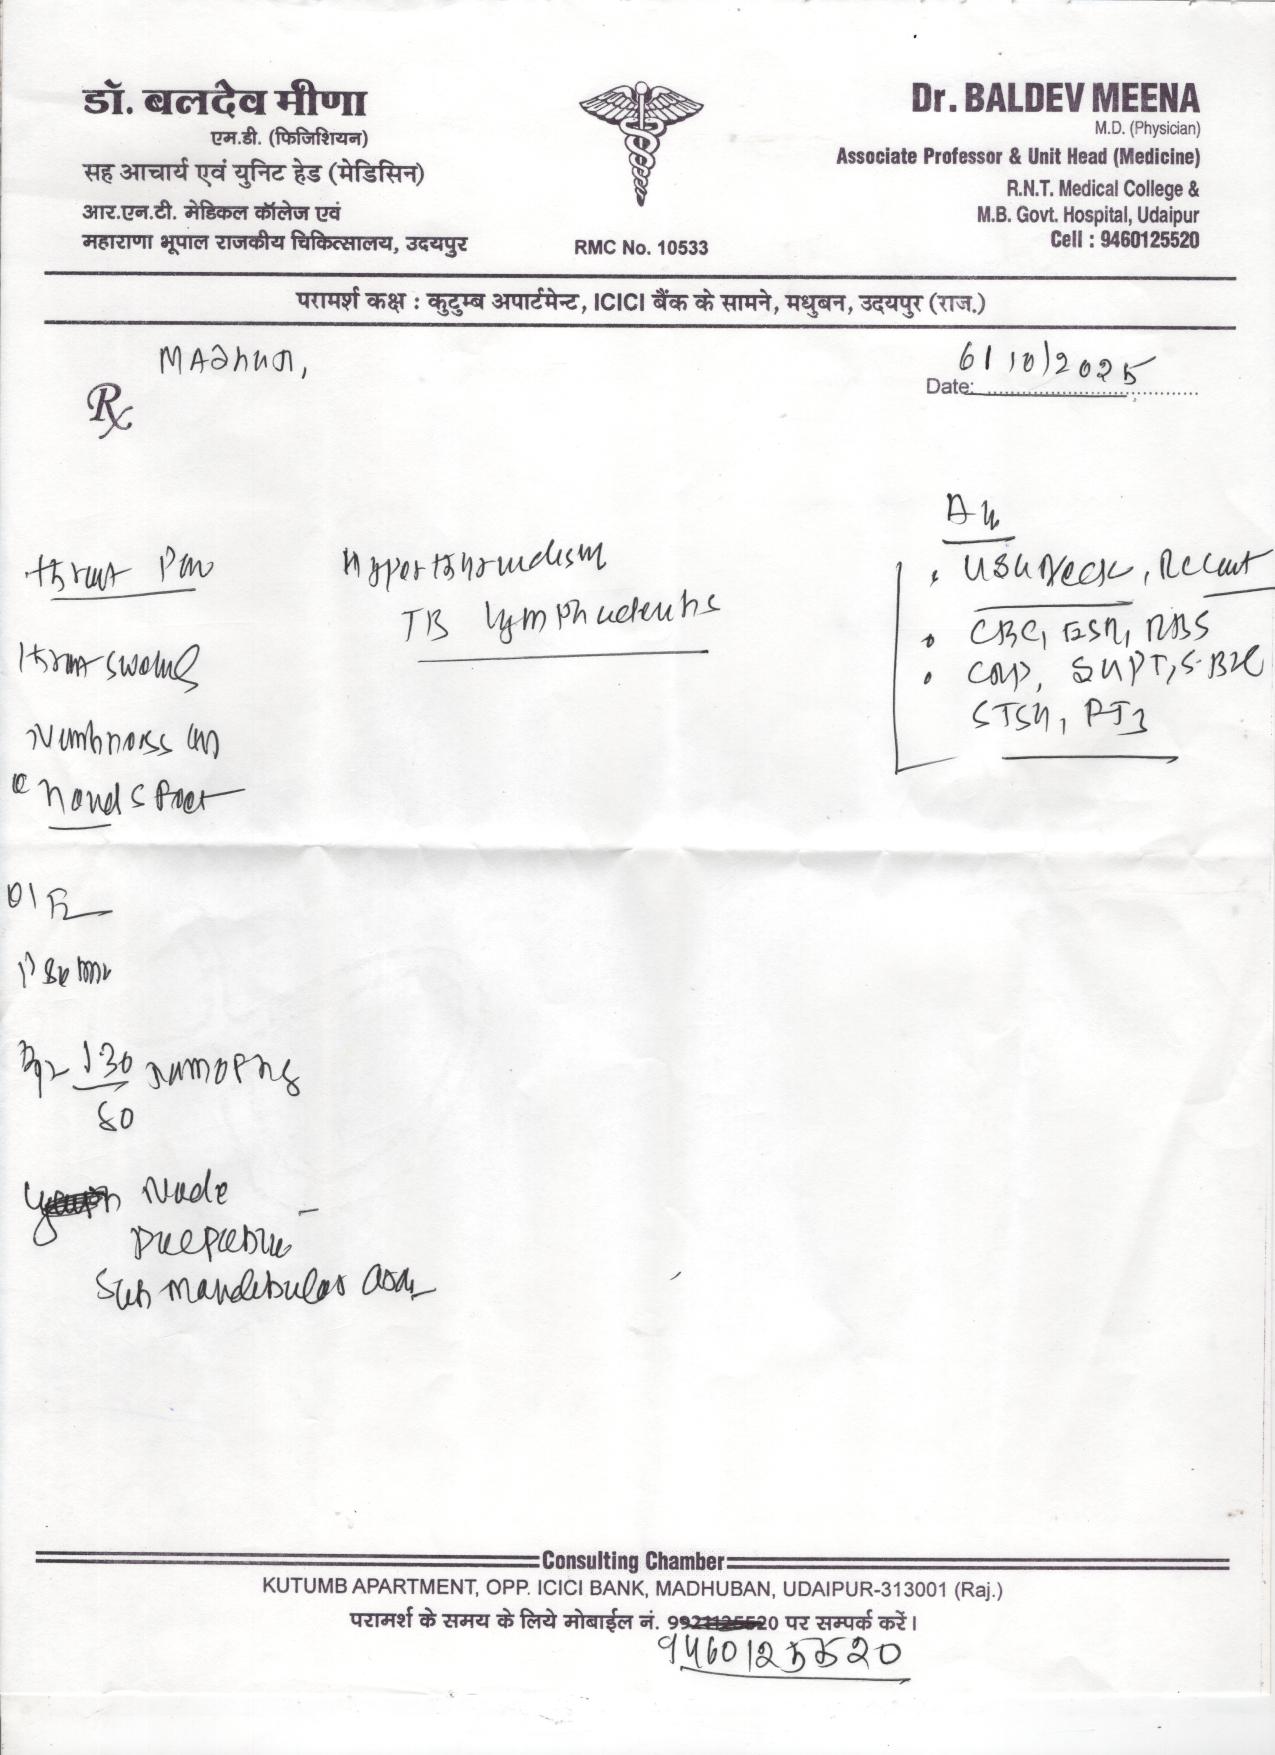 डॉ. बलदेव मीणा
एम.डी. (फिजिशियन)
सह आचार्य एवं युनिट हेड (मेडिसिन)
आर.एन.टी. मेडिकल कॉलेज एवं
महाराणा भूपाल राजकीय चिकित्सालय, उदयपुर
RMC No. 10533
Dr. BALDEV MEENA
M.D. (Physician)
Associate Professor & Unit Head (Medicine)
R.N.T. Medical College &
M.B. Govt. Hospital, Udaipur
Cell : 9460125520
परामर्श कक्ष : कुटुम्ब अपार्टमेन्ट, ICICI बैंक के सामने, मधुबन, उदयपुर (राज.)
Rx
Date: 6/10/2025
throat Pain
throat swelling
Numbness in
hands feet
O/E
BP 130
80
Node
Palpable
Sub mandibular area
Hyperthyroidism
TB lymphadenitis
Adv
USG Neck, Recent
CBC, ESR, RBS
CRP, SGPT, S-B12
STSH, FT3
Consulting Chamber
KUTUMB APARTMENT, OPP. ICICI BANK, MADHUBAN, UDAIPUR-313001 (Raj.)
परामर्श के समय के लिये मोबाईल नं. 9921125520 पर सम्पर्क करें।
9460125520